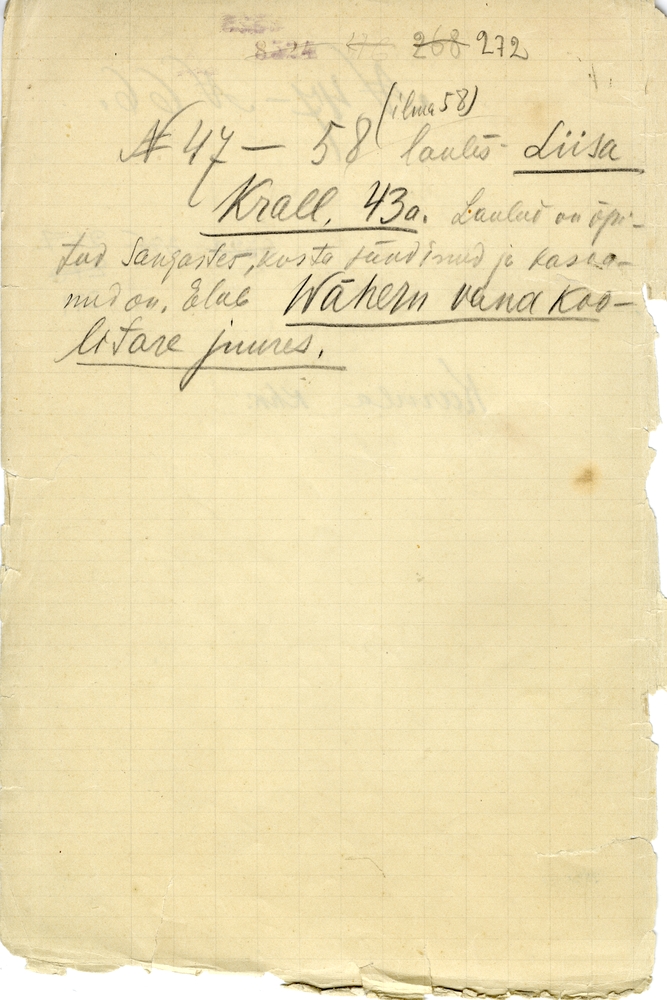 8324 268 272
(ilma 58)
№ 47 — 58 laulis Liisa
Krall, 43a. Laulud on õpi-
tud Sangastes, kus ta sündinud ja kasva-
nud on. Elab Wäheru vana koo-
litare juures.